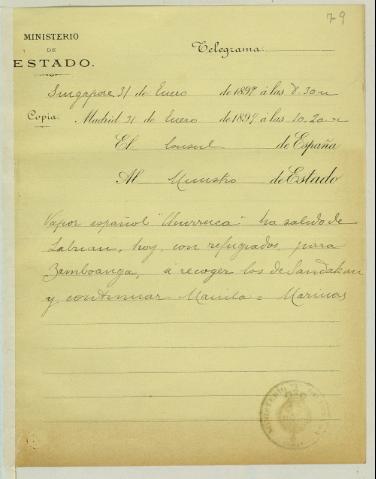 79
MINISTERIO
DE
ESTADO.
Telegrama:
Singapore 31 de Enero de 1897 á las 8.30 n
Copia: Madrid 31 de Enero de 1897 á las 10.20 n
El Consul de España
Al Ministro de Estado
Vapor español " " ha salido de
Labuan, hoy, con refugiados para
Zamboanga, á recoger los de Sandakan
y continuar Manila = Marinas